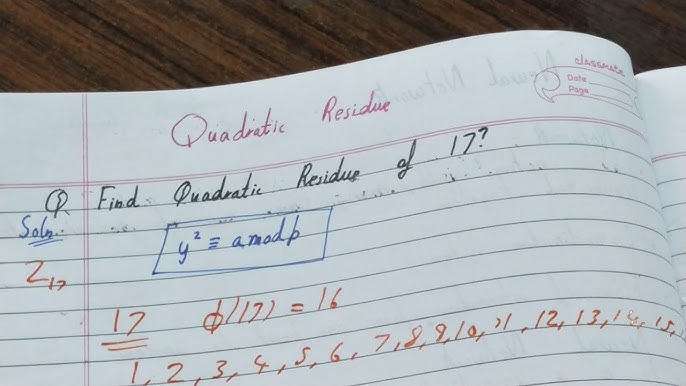 classmate
Date
Page
Quadratic Residue
Q Find Quadratic Residue of 17?
Soln.
y² ≡ a mod p
Z₁₇
17 ϕ(17) = 16
1, 2, 3, 4, 5, 6, 7, 8, 9, 10, 11, 12, 13, 14, 15,